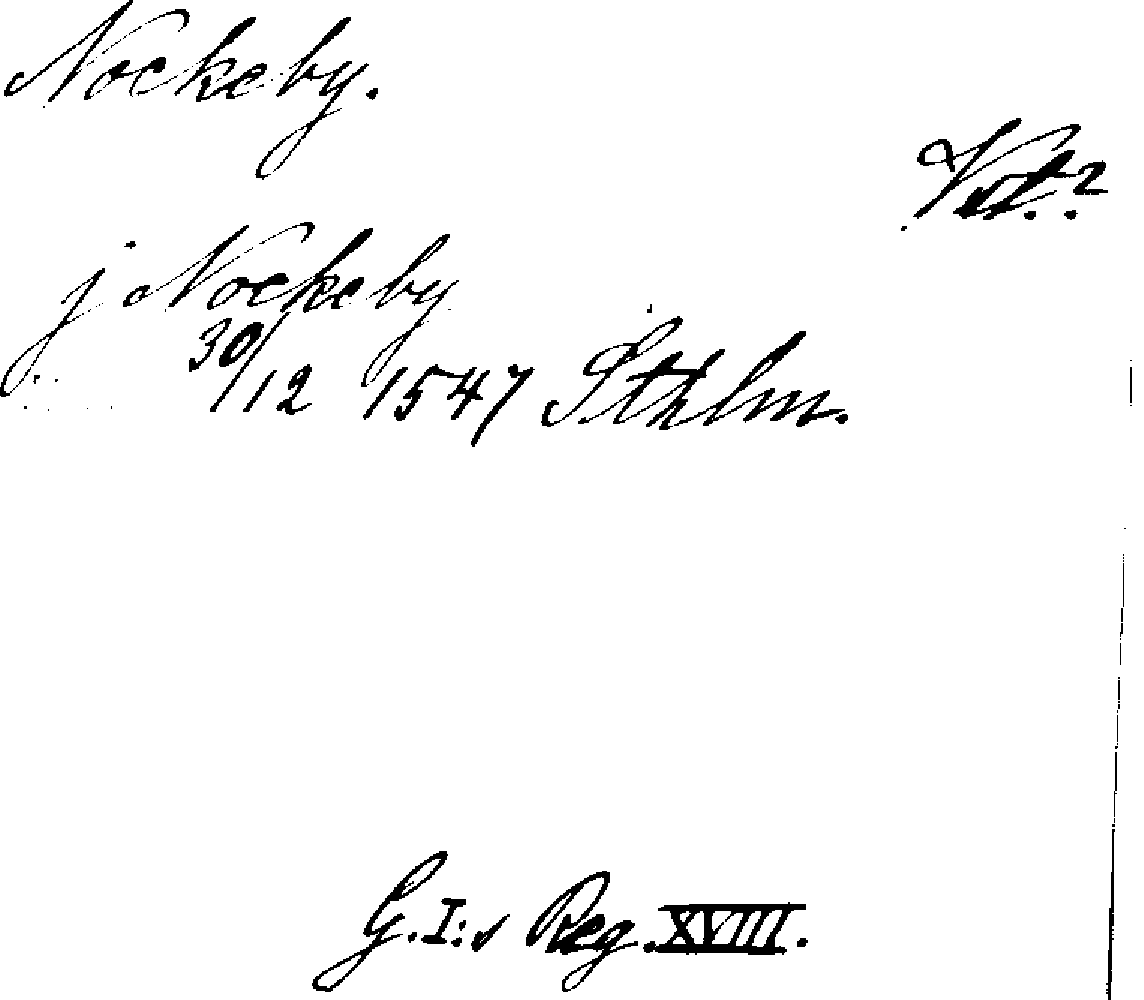 Nockeby.
j Nockeby
30/12 1547 Sthlm.
G. I:s Reg. XVIII.